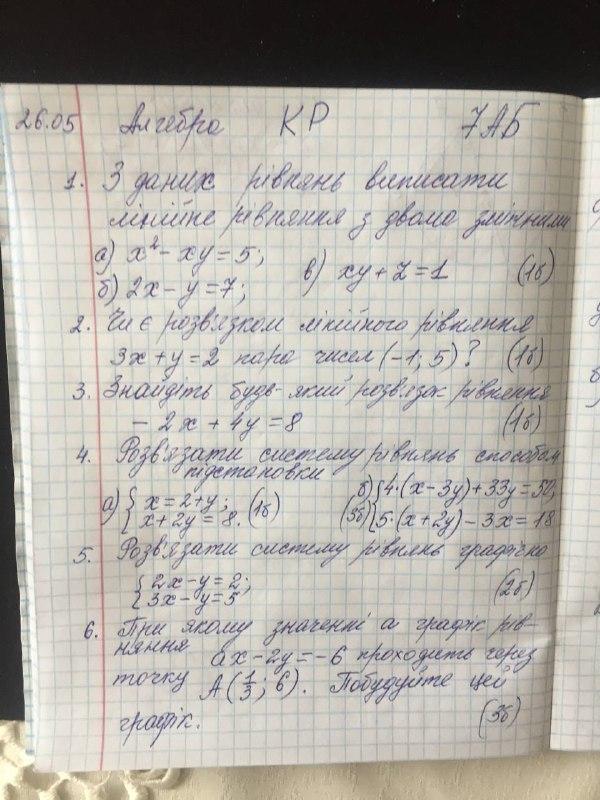 26.05 Алгебра КР 7АБ
1. З даних рівнянь виписати
лінійне рівняння з двома змінними
а) x² - xy = 5;
б) 2x - y = 7; в) xy + z = 1 (1б)
2. Чи є розв'язком лінійного рівняння
3x + y = 2 пара чисел (-1; 5)? (1б)
3. Знайдіть будь-який розв'язок рівняння
- 2x + 4y = 8 (1б)
4. Розв'язати систему рівнянь способом
підстановки
а) { x = 2 + y; (1б) б) { 4·(x - 3y) + 33y = 50;
{ x + 2y = 8. (3б) { 5·(x + 2y) - 3x = 18
5. Розв'язати систему рівнянь графічно
{ 2x - y = 2;
{ 3x - y = 5 (2б)
6. При якому значенні а графік рів-
няння ax - 2y = -6 проходить через
точку A(1/3; 6). Побудуйте цей
графік. (3б)